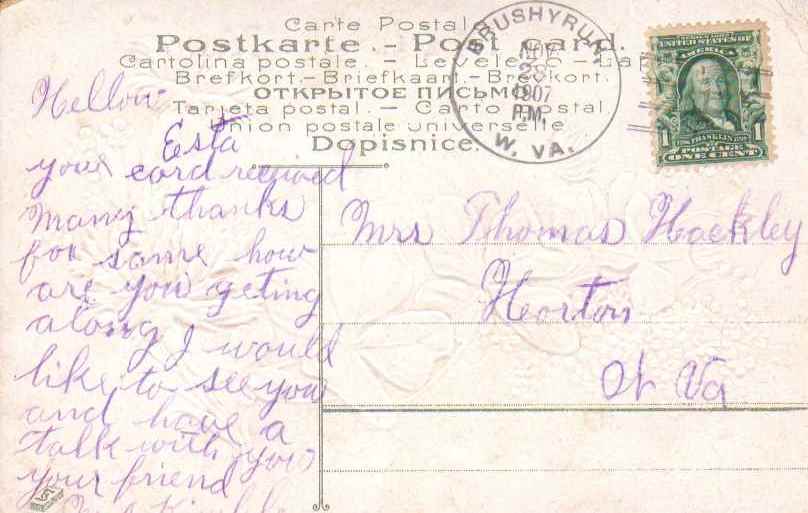 Carte Postale
Postkarte. - Post card.
Cartolina postale. - Levelező - Lap
Brefkort. - Briefkaart. - Brevkort.
ОТКРЫТОЕ ПИСЬМО
Tarjeta postal. - Carto postal
Union postale universelle
Dopisnice.
BRUSHYRUN
1907
P.M.
W. VA.
UNITED STATES OF
AMERICA
1 FRANKLIN 1
POSTAGE
ONE CENT
Hellow
Esta
your card received
many thanks
for same how
are you geting
along I would
like to see you
and have a
talk with you
your friend
Mrs Thomas Hackley
Horton
W Va